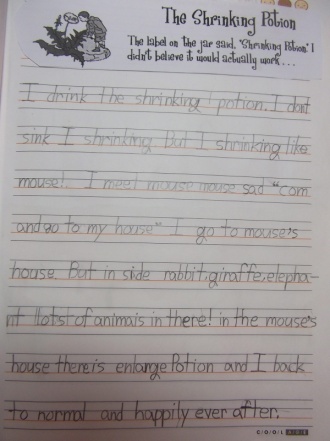 The Shrinking Potion
The label on the jar said, "Shrinking Potion". I
didn't believe it would actually work...
I drink the shrinking potion. I dont
sink I shrinking. But I shrinking like
mouse!. I meet mouse mouse sad "com
and go to my house" I go to mouse's
house. But in side rabbit, giraffe, elepha-
nt llots! of animals in there! in the mouse's
house there is enlarge Potion and I back
to normal and happily ever after.
COOL